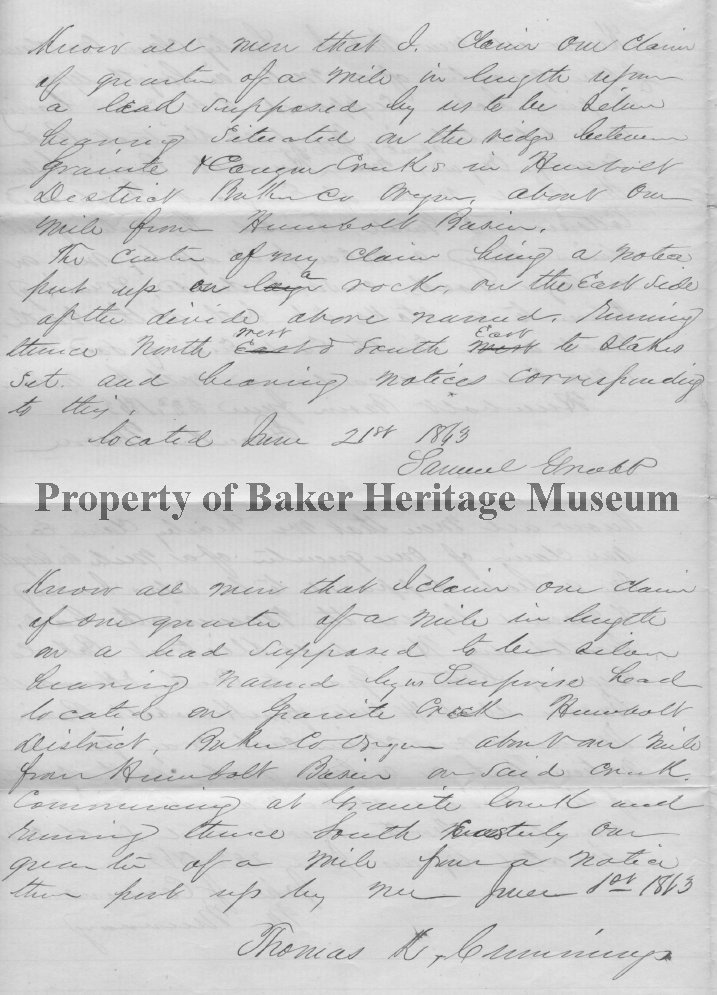 Know all men that I. claim one claim
of quarter of a mile in length upon
a lead supposed by us to be silver
bearing situated on the ridge between
Granite & Cougar Creeks in Humbolt
District Baker Co Oregon. about one
mile from Humbolt Basin.
The center of my claim being a notice
put up on a rock. on the East side
of the divide above named. running
thence North west East & South East West to stakes
set. and bearing notices corresponding
to this.
located June 21st 1863
Samuel
Property of Baker Heritage Museum
Know all men that I claim one claim
of one quarter of a mile in length
on a lead supposed to be silver
bearing named by us Surprise Lead
located on Granite Creek Humbolt
District, Baker Co Oregon about one mile
from Humbolt Basin on said creek.
Commencing at Granite Creek and
running thence South Easterly one
quarter of a mile from a notice
then put up by me June 1st 1863
Thomas K. Cummings